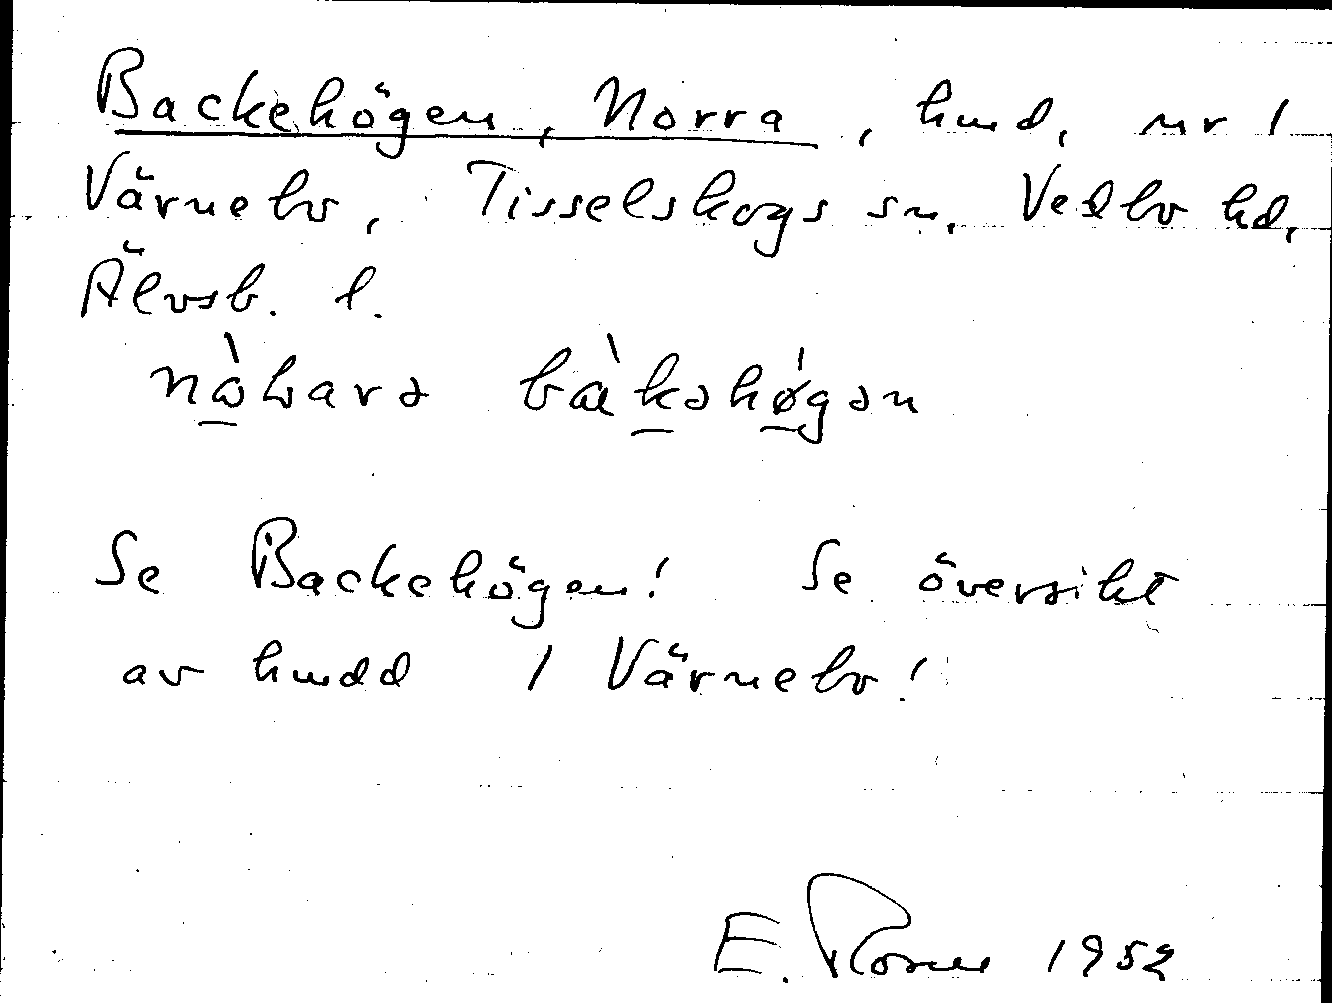 Backehögen, Norra, hmd, nr 1
Värnebo, Tisselskogs sn, Vedbo hd,
Älvsb. l.
Se Backehögen! Se översikt
av hmdd 1 Värnebo!
E. 1952